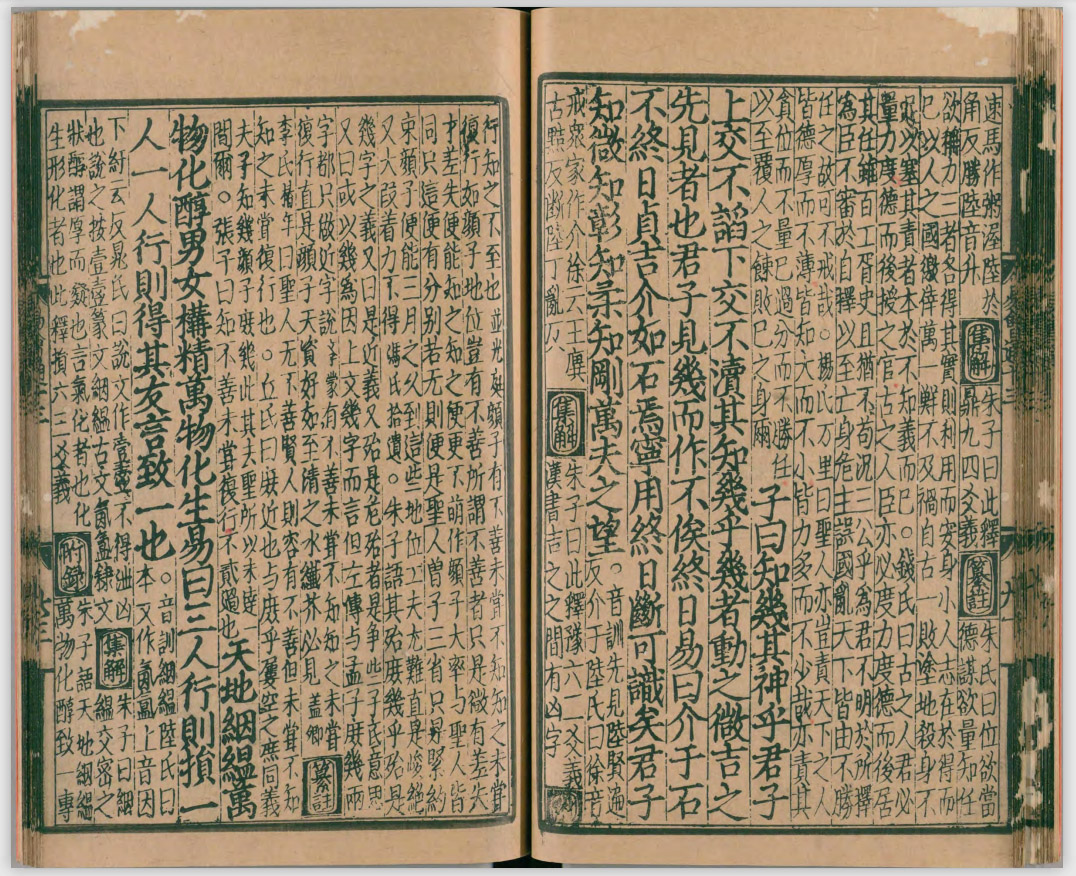 速馬作粥渥陸於
角反勝陸音升
集解
朱子曰此釋
鼎九四爻義
纂註
朱氏曰位欲當
德謀欲量知任
欲稱力三者各得其實則利用而安身小人志在於得而
已以人之國徼倖萬一鮮不及禍自古一敗塗地殺身不
足以塞其責者本於不知義而已。錢氏曰古之人君必
量力度德而後授之官古之人臣亦必度力度德而後居
其任雖百工胥史且猶不苟況三公乎為君不明於所擇
為臣不審於自擇以至亡身危主誤國亂天下皆由不勝
任之故可不戒哉。楊氏万里曰聖人亦豈責天下之人
皆德厚而不薄皆知大而不小皆力多而不少哉亦責其
貪位而不量己過分而不勝任
以至覆人之餗敗己之身爾
子曰知幾其神乎君子
上交不諂下交不瀆其知幾乎幾者動之微吉之
先見者也君子見幾而作不俟終日易曰介于石
不終日貞吉介如石焉寧用終日斷可識矣君子
知微知彰知柔知剛萬夫之望
。音訓先見陸賢遍
反介于陸氏曰徐音
戒眾家作介徐云王廙
古黠反斷陸丁亂反
集解
朱子曰此釋豫六二爻義
漢書吉之之間有凶字
附錄
行知之不至也並光庭顏子有不善未嘗不知知之未嘗
復行如顏子地位豈有不善所謂不善者只是微有差失
才差失便能知之知之便更不萌作顏子大率与聖人皆
同只這便有分别若无則便是聖人曾子三省只是緊約
束顏子便能三月之久到這些地位工夫尤難直是峻絕
又大段着力不得。馮氏拾遺。朱子語其殆庶幾乎殆是
幾字之義又曰是近義又殆是危殆者是争些子底意思
又曰或以幾為因上文幾字而言但左傳与孟子庶幾兩
字都只做好字說
復行直是顏子天資好如至清之水纖芥必見
蓋卿
纂註
李氏椿年曰聖人无不善賢人則容有不善但未嘗不知
知之未嘗復行也。丘氏曰庶近也与庶乎屢空之庶同義
夫子知幾顏子庶幾此其去聖所以未達
間爾。張子曰知不善未嘗復行不貳過也
天地絪縕萬
物化醇男女構精萬物化生易曰三人行則損一
人一人行則得其友言致一也
。音訓絪縕陸氏曰
本文作氤氳上音因
下紆云反晁氏曰說文作壹壺不得泄凶
也說之按壹壺篆文絪縕古文氤氳隸文
集解
朱子曰絪
縕交密之
狀醇謂厚而凝也言氣化者也化
生形化者也此釋損六三爻義
附錄
朱子語天地絪縕
萬物化醇致一專